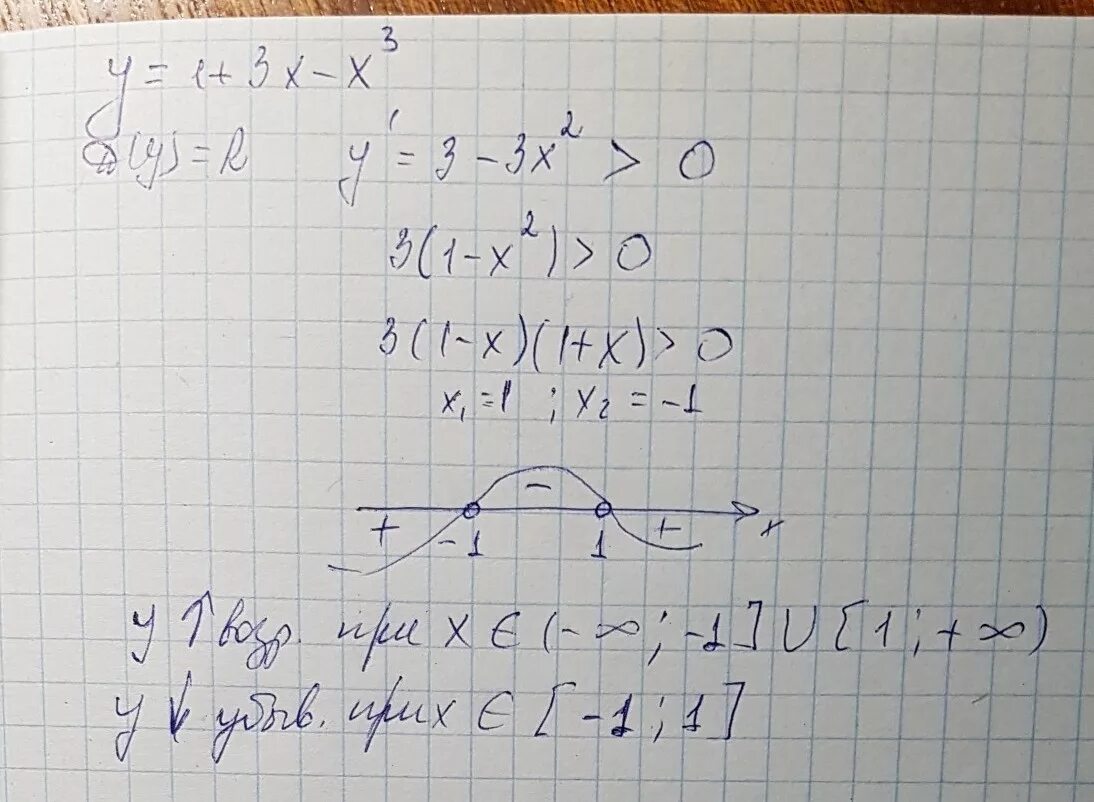 y = 1 + 3x - x³
D(y) = R y' = 3 - 3x² > 0
3(1 - x²) > 0
3(1 - x)(1 + x) > 0
x₁ = 1 ; x₂ = -1
+ - +
-1 1 x
y ↑ возр. при x ∈ (-∞; -1] ∪ [1; +∞)
y ↓ убыв. при x ∈ [-1; 1]